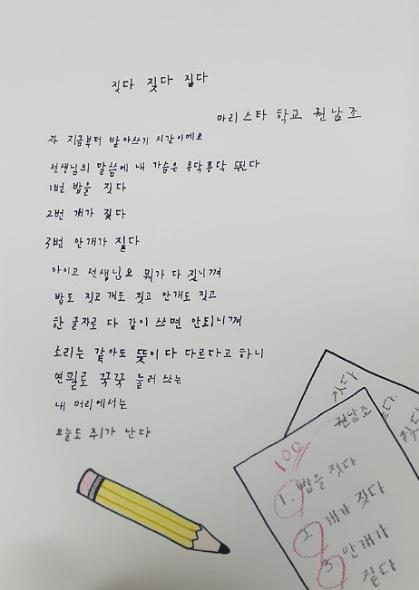 짓다 짖다 짙다
마리스타 학교 권남조
자 지금부터 받아쓰기 시간이에요
선생님의 말씀에 내 가슴은 콩닥콩닥 뛴다
1번 밥을 짓다
2번 개가 짖다
3번 안개가 짙다
아이고 선생님요 뭐가 다 짓니껴
밥도 짓고 개도 짖고 안개도 짓고
한 글자로 다 같이 쓰면 안되니껴
소리는 같아도 뜻이 다 다르다고 하니
연필로 꾹꾹 눌러 쓰는
내 머리에서는
오늘도 쥐가 난다
권남조
100
1. 밥을 짓다
2. 개가 짖다
3. 안개가
짙다